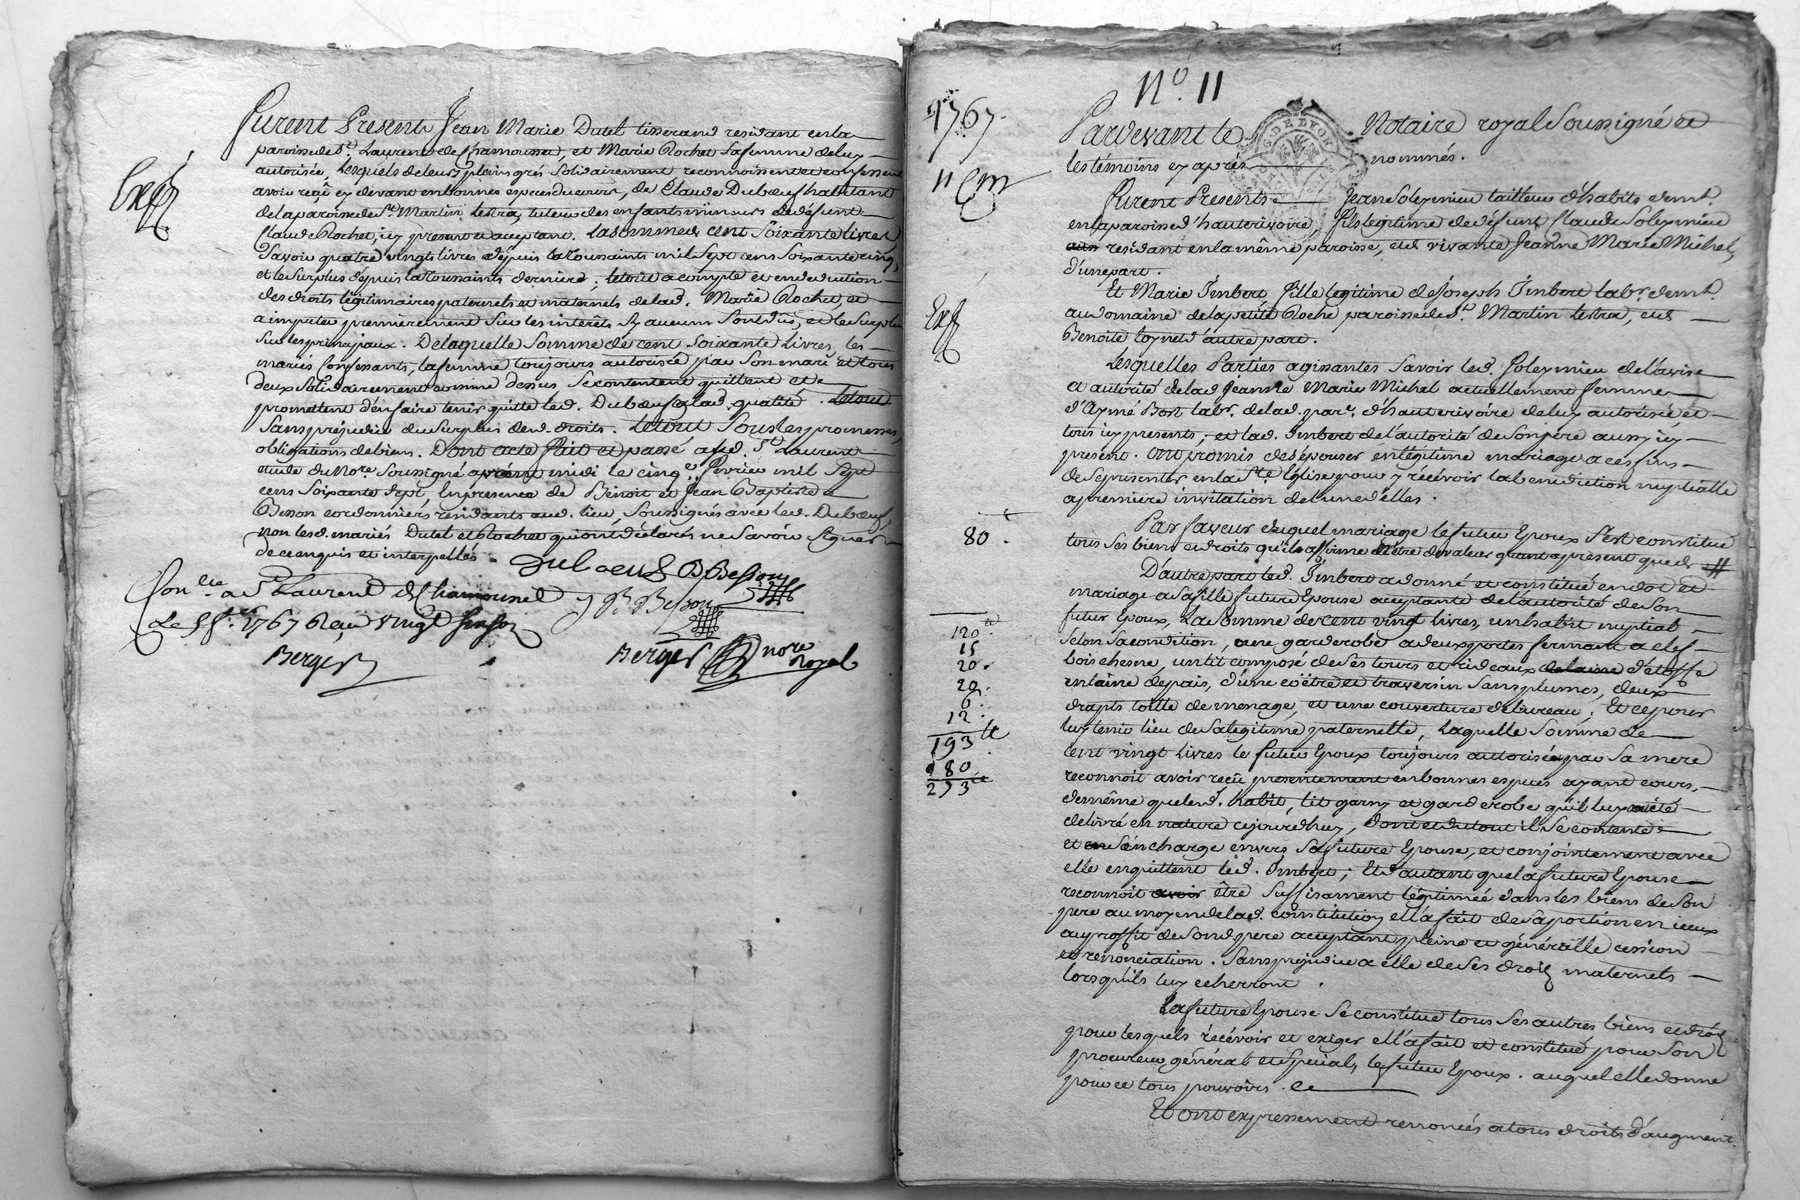 Furent Presents Jean Marie Dutel tisserand residant en la
paroisse de St. Laurent de Chamousset, et Marie Rochet sa femme de luy
autorisée, Lesquels de leurs pleins grés Solidairement reconnoissent et confessent
avoir reçû cy devant en bonnes espèces du cours, de Claude Dubœuf habitant
de la paroisse de St. Martin Lestra, tuteur des enfants mineurs de défunt
Claude Rochet, icy present et acceptant. La somme de cent Soixante livres
Savoir quatre vingt livres depuis la toussaints mil Sept cens Soixante cinq,
et le Surplus depuis la toussaints derniere; le tout a compte et en deduction
des droits légitimaires paternels et maternels de lad. Marie Rochet, et
a imputer premierement Sur les interêts Sy aucuns Sont dus, et le Surplus
Sur les principaux. De laquelle Somme de cent Soixante Livres, les
mariés Confessants, la femme toujours autorisée par Son mari et tous
deux Solidairement comme dessus Se contentent quittent et
promettent d'en faire tenir quitte led. Dubœuf esd. qualité. Le tout
Sans préjudice du Surplus desd. droits. Le tout Sous les promesses,
obligations de biens. Dont acte fait et passé aud. St. Laurent
etude du Nore. Soussigné avant midi le cinq. fevrier mil Sept
cens Soixante Sept, En presence de Benoit et Jean Baptiste
Besson cordonniers residants aud. lieu, Soussignés avec led. Dubœuf,
non lesd. mariés Dutel et Rochet qui ont déclarés ne Savoir Signer
de ce enquis et interpellés.
Duboeuf B Besson
Con.lle a St Laurent de Chamousset J B Besson
Le 5 f.er 1767 Reçu vingt
Berger
Berger nore
Royal
Exp
No. 11
1767
11
Exp
Pardevant le Notaire royal Soussigné et
les témoins cy après nommés.
Furent Presents Jean Soleymieu tailleur d'habits demt.
en la paroisse d'hauterivoire fils legitime de défunt Claude Soleymieu
residant en la même paroisse, et de vivante Jeanne Marie Michel,
d'une part.
Et Marie Imbert fille legitime de Joseph Imbert labr. demt.
au domaine de la petite Roche paroisse de St. Martin Lestra, et de
Benoite loynet d'autre part.
Lesquelles Parties agissantes Savoir led. Soleymieu de l'avis
et autorité de lad. Jeanne Marie Michel actuellement femme
d'Aymé Bort labr. de lad. parr. d'hauterivoire de luy autorisée et
tous icy presents, et lad. Imbert de l'autorité de son père aussy icy
present. Ont promis de s'épouser en légitime mariage a ces fins
de se presenter en la Ste. Eglise pour y récévoir la benediction nuptialle
a premiere invitation de l'une d'elles.
Par faveur duquel mariage le futur Epoux S'est constitué
tous ses biens et droits qu'il affirme être de valeur quant a present que de
80.
D'autre part led. Imbert a donné et constitué en dot et
mariage a Sa fille future Epouse acceptante de l'autorité de Son
futur Epoux, La Somme de cent vingt livres, un habit nuptial
Selon Sa condition, une garderobe a deux portes fermant a clef
bois chesne, un lit composé de Ses tours et rideaux d'étoffe
en laine depais, d'une coëtre et traversin Sans plumes, deux
draps toille de menage, et une couverture de bureau, Et ce pour
luy tenir lieu de Sa legitime paternelle, Laquelle Somme de
cent vingt Livres le futur Epoux toujours autorisé par Sa mere
reconnoit avoir reçû presentement en bonnes espèces ayant cours,
de même que led. habit, lit garny et garderobe qu'il luy a été
délivré en nature cejourd'huy, dont et du tout il Se contente
et S'en charge envers Sa future Epouse, et conjointement avec
elle en quittent led. Imbert; Et d'autant que la future Epouse
reconnoit être Suffisament légitimée dans les biens de Son
pere au moyen de lad. constitution, ell'a fait de Sa portion en iceux
au proffit de Sond. pere acceptant, pleine et généralle cession
et renonciation. Sans prejudice a elle de Ses droits maternels
lorsqu'ils luy écherront.
120
15
20.
20.
6.
12
193
80
273
La future Epouse Se constitue tous Ses autres biens et droits
pour lesquels récévoir et exiger ell'a fait et constitué pour Son
procureur général et Special, le futur Epoux. auquel elle donne
pour ce tous pouvoirs.
Et ont expressement renoncés a tous droits d'augment